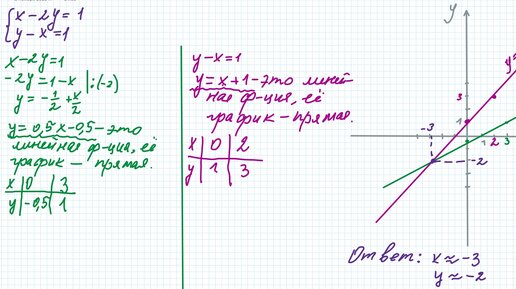 { x - 2y = 1
y - x = 1
x - 2y = 1
-2y = 1 - x |:(-2)
y = -1/2 + x/2
y = 0,5x - 0,5 - это
линейная ф-ция, её
график — прямая.
x | 0 | 3
y | -0,5 | 1
y - x = 1
y = x + 1 - это линей
ная ф-ция, её
график - прямая.
x | 0 | 2
y | 1 | 3
y
3
1
-3
2 3
-2
Ответ: x ≈ -3
y ≈ -2